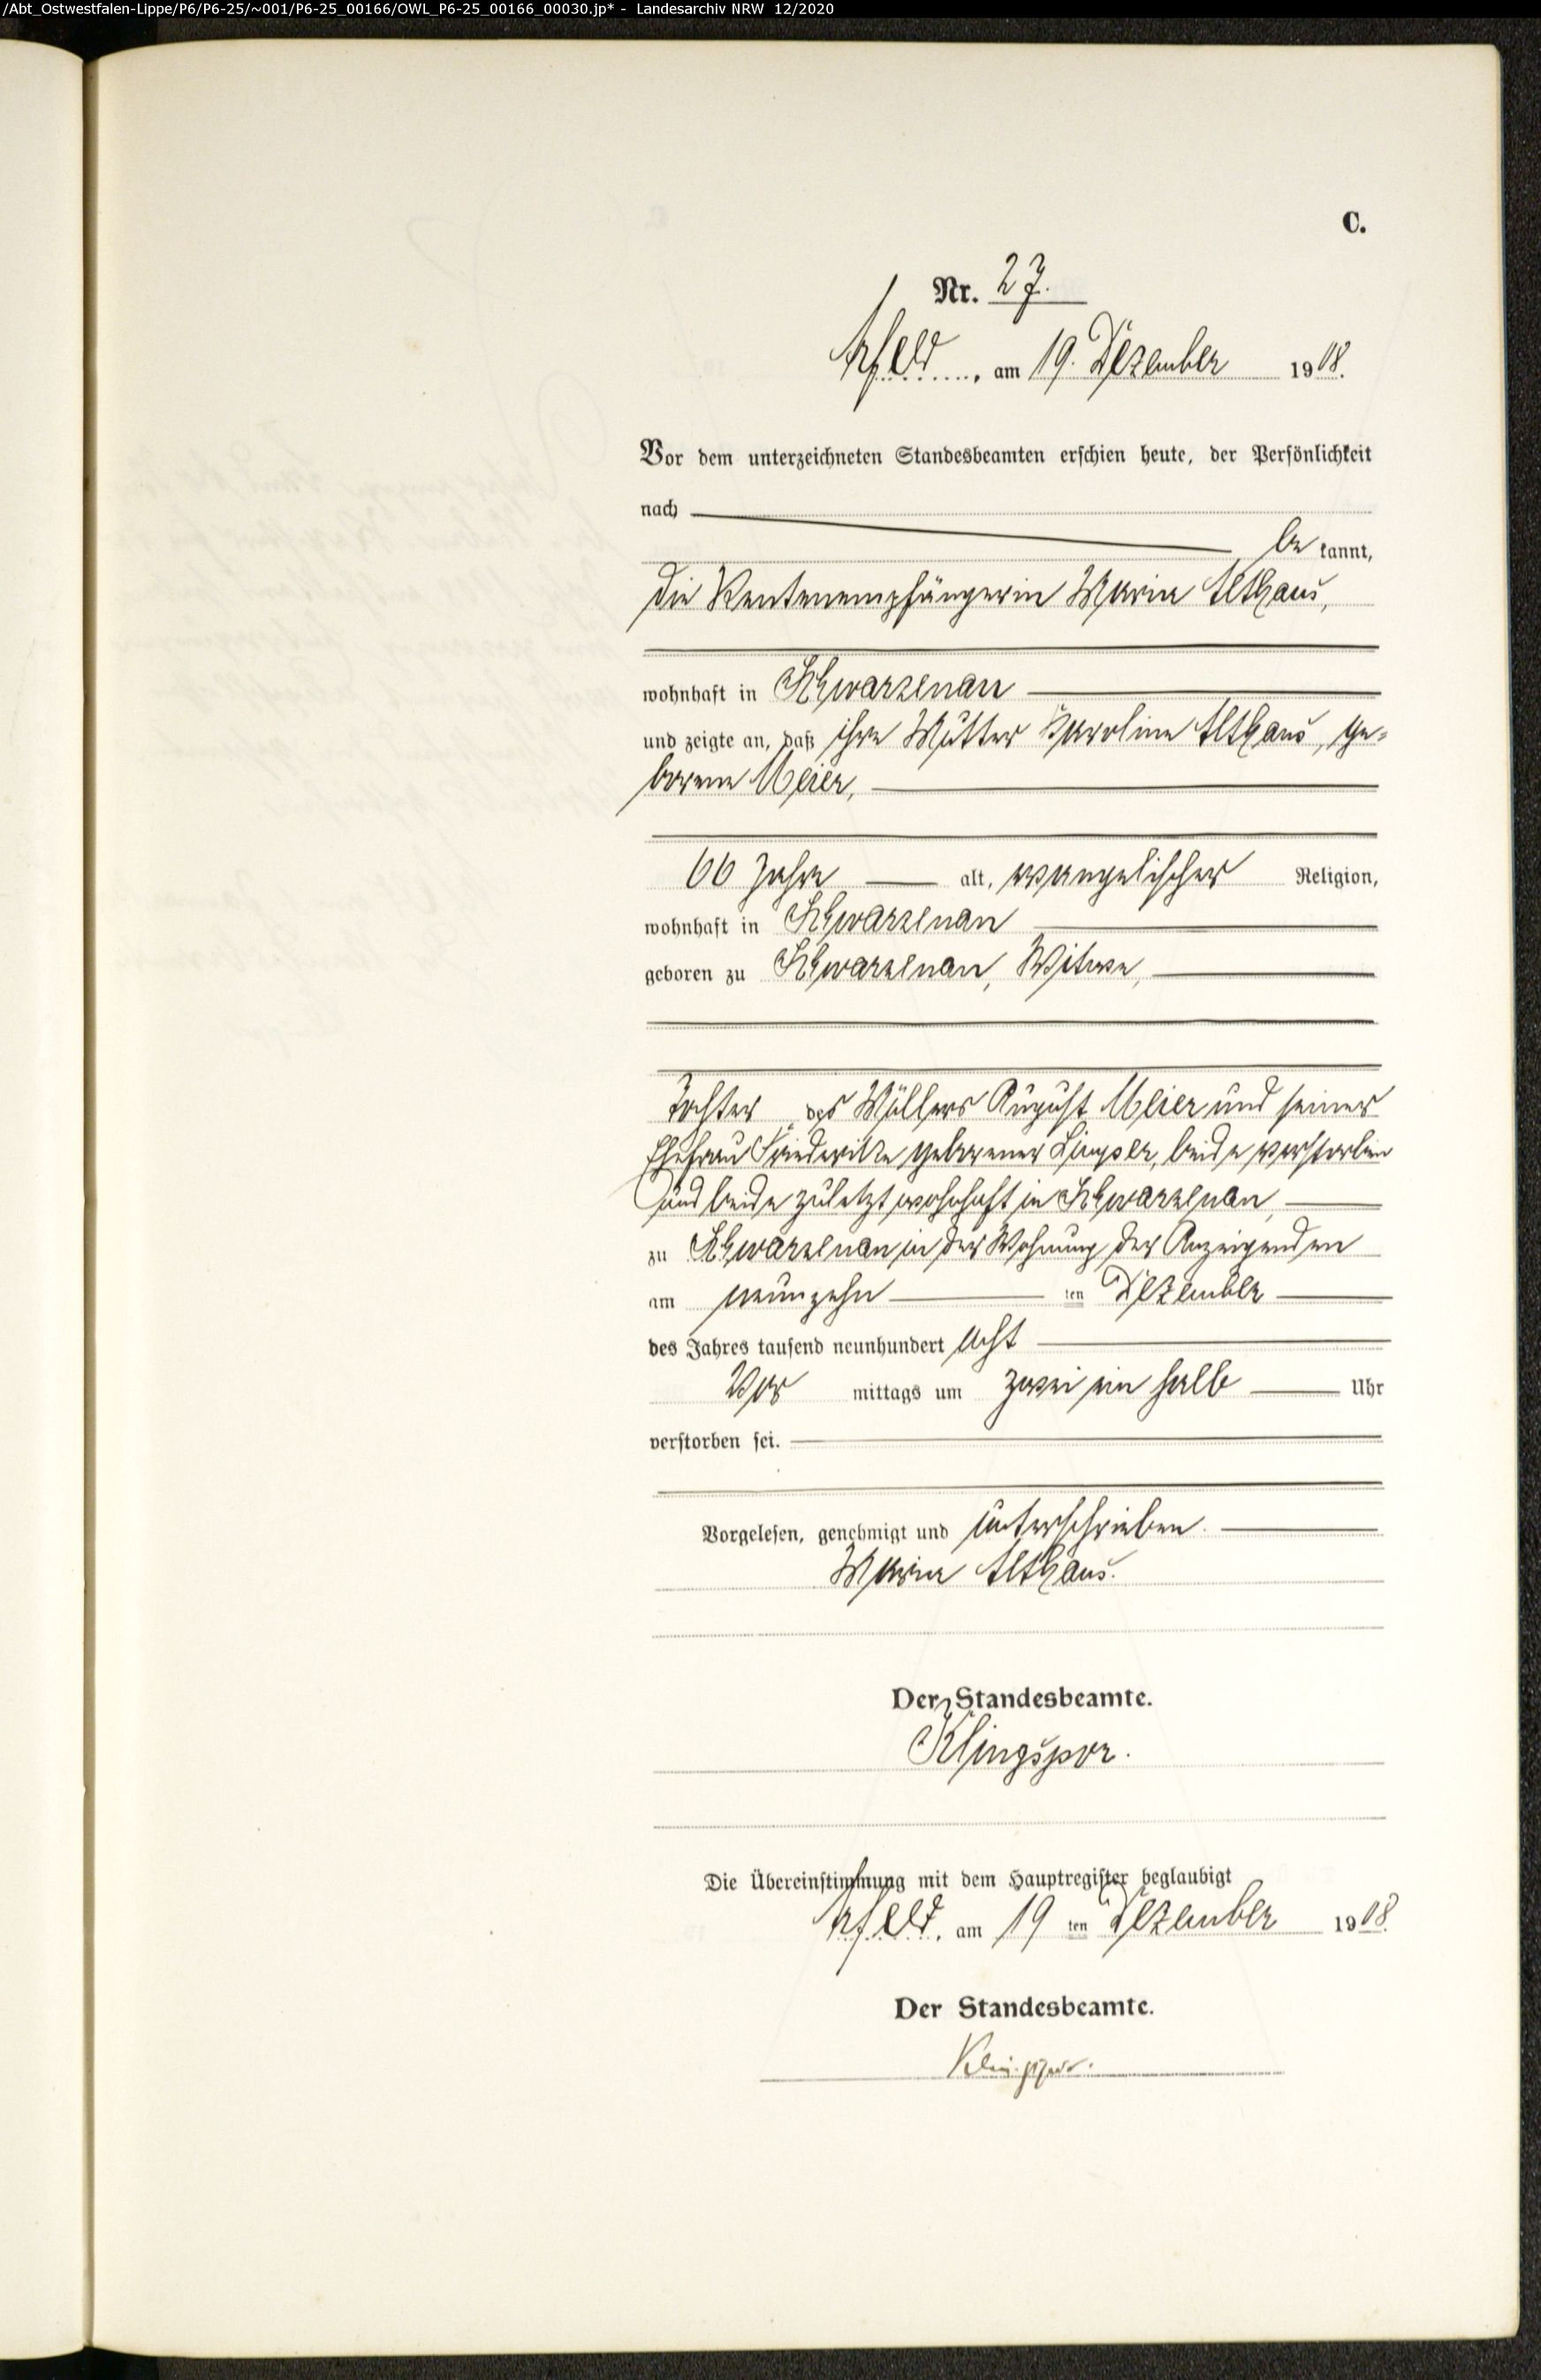 /Abt_Ostwestfalen-Lippe/P6/P6-25/~001/P6-25_00166/OWL_P6-25_00166_00030.jp* - Landesarchiv NRW 12/2020
C.
Nr. 27.
Arfeld, am 19. Dezember 1908.
Vor dem unterzeichneten Standesbeamten erschien heute, der Persönlichkeit
nach
be kannt,
die Rentenempfängerin Maria Althaus,
wohnhaft in Schwarzenau
und zeigte an, daß ihre Mutter Karoline Althaus, ge-
borene Meier,
66 Jahre alt, evangelischer Religion,
wohnhaft in Schwarzenau
geboren zu Schwarzenau, Witwe,
Tochter des Müllers August Meier und seiner
Ehefrau Friederike geborener, beide verstorben
und beide zuletzt wohnhaft in Schwarzenau,
zu Schwarzenau in der Wohnung der Anzeigenden
am neunzehn ten Dezember
des Jahres tausend neunhundert acht
Vor mittags um zwei ein halb Uhr
verstorben sei.
Vorgelesen, genehmigt und unterschrieben.
Maria Althaus.
Der Standesbeamte.
Klingspor.
Die Übereinstimmung mit dem Hauptregister beglaubigt
Arfeld, am 19 ten Dezember 1908.
Der Standesbeamte.
Klingspor.